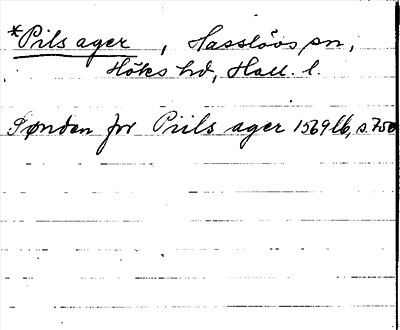 *Pils ager, Hasslövs sn,
Höks hd, Hall. l.
Sønden for Piils ager 1569 lb, s. 750